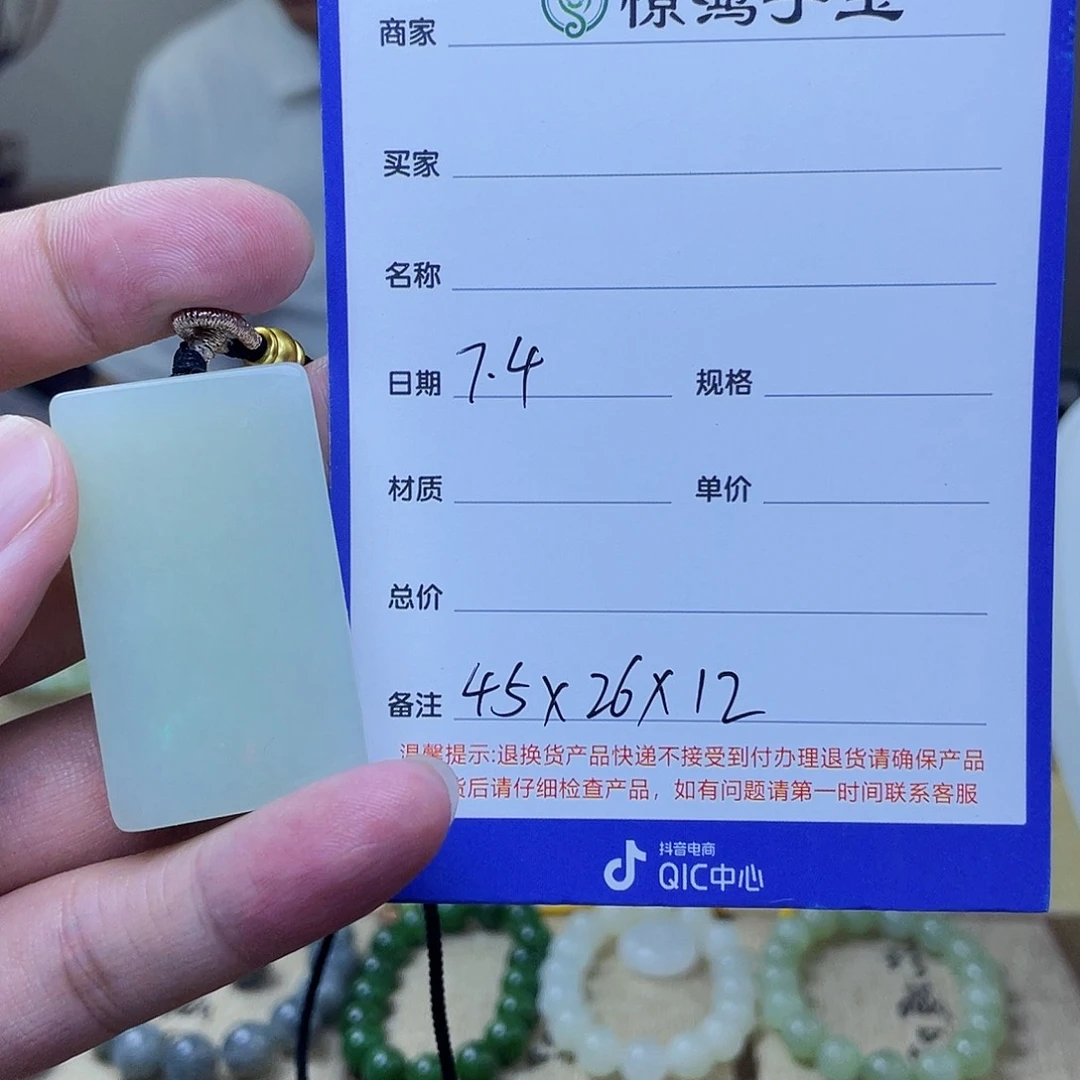 惊鸿子玉
商家
买家
名称
日期 7.4 规格
材质 单价
总价
备注 45X26X12
温馨提示:退换货产品快递不接受到付办理退货请确保产品
货后请仔细检查产品，如有问题请第一时间联系客服
抖音电商
QIC中心